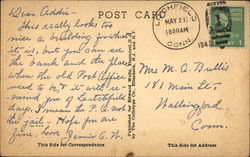 POST CARD
Dear Addie-
This really looks too
nice a building for what
it is, but you can see
the bank and the place
where the old Post Office
used to be. It will re-
mind you of Litchfield
days. I mean the P.O. not
the jail - Hope you are
fine, here. Jennie G. W.
LITCHFIELD
MAY 21
1630AM
CONN.
194
1
Mrs M. A. Bullis
181 Main St
Wallingford
Conn.
This Side for Correspondence
This Side for Address